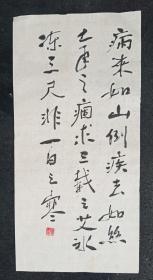 病来如山倒疾去如丝
七年之痼求三载之艾冰
冻三尺非一日之寒